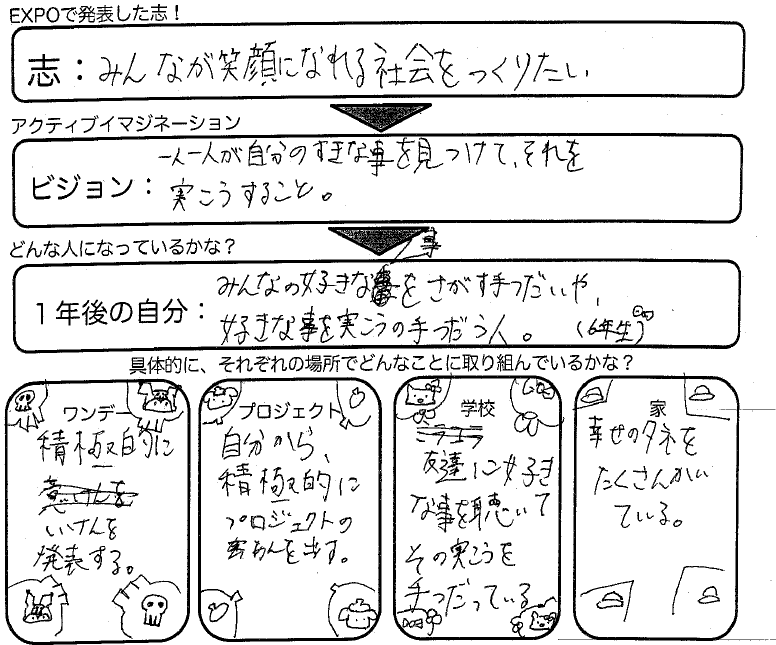 EXPOで発表した志！
志：みんなが笑顔になれる社会をつくりたい
アクティブイマジネーション
一人一人が自分のすきな事を見つけて、それを
ビジョン：実こうすること。
どんな人になっているかな？
事
みんなの好きな をさがす手つだいや、
１年後の自分：好きな事を実こうの手つだう人。（6年生）
具体的に、それぞれの場所でどんなことに取り組んでいるかな？
ワンデー
積極的に
いけんを
発表する。
プロジェクト
自分から、
積極的に
プロジェクトの
あんを出す。
学校
友達に好き
な事を聴いて
その実こうを
手つだっている
家
幸せのタネを
たくさんかい
ている。